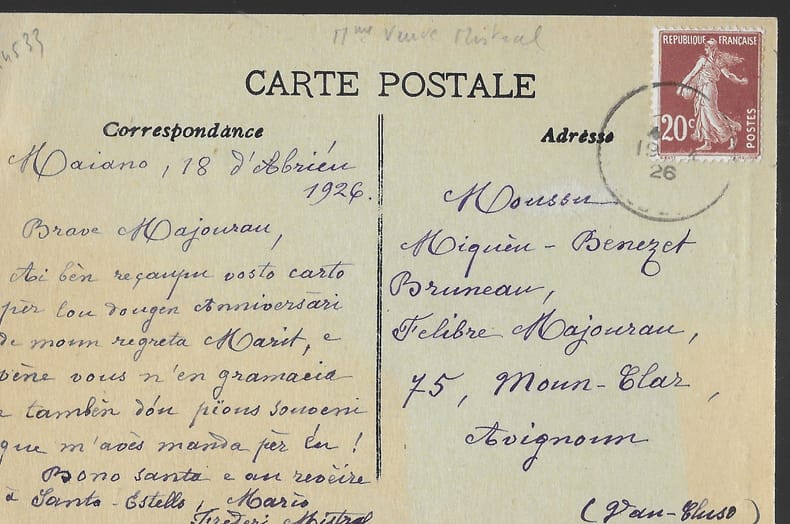 4533
Mme Veuve Mistral
CARTE POSTALE
Correspondance
Maiano, 18 d'Abriéu
1926.
Brave Majourau,
Ai bèn reçaupu vosto carto
pèr lou dougen Anniversàri
de moun regreta Marit, e
vène vous n'en gramacia
e tambèn dóu pïous souveni
que m'avès manda pèr éu !
Bono santa e au revèire
à Santo-Estello, Marìo
Frederi Mistral
REPUBLIQUE FRANÇAISE
20c
POSTES
26
Adresse
Moussu
Miquèu-Benezet
Bruneau,
Felibre Majourau,
75, Moun-Clar,
Avignoun
(Vau-Cluso)